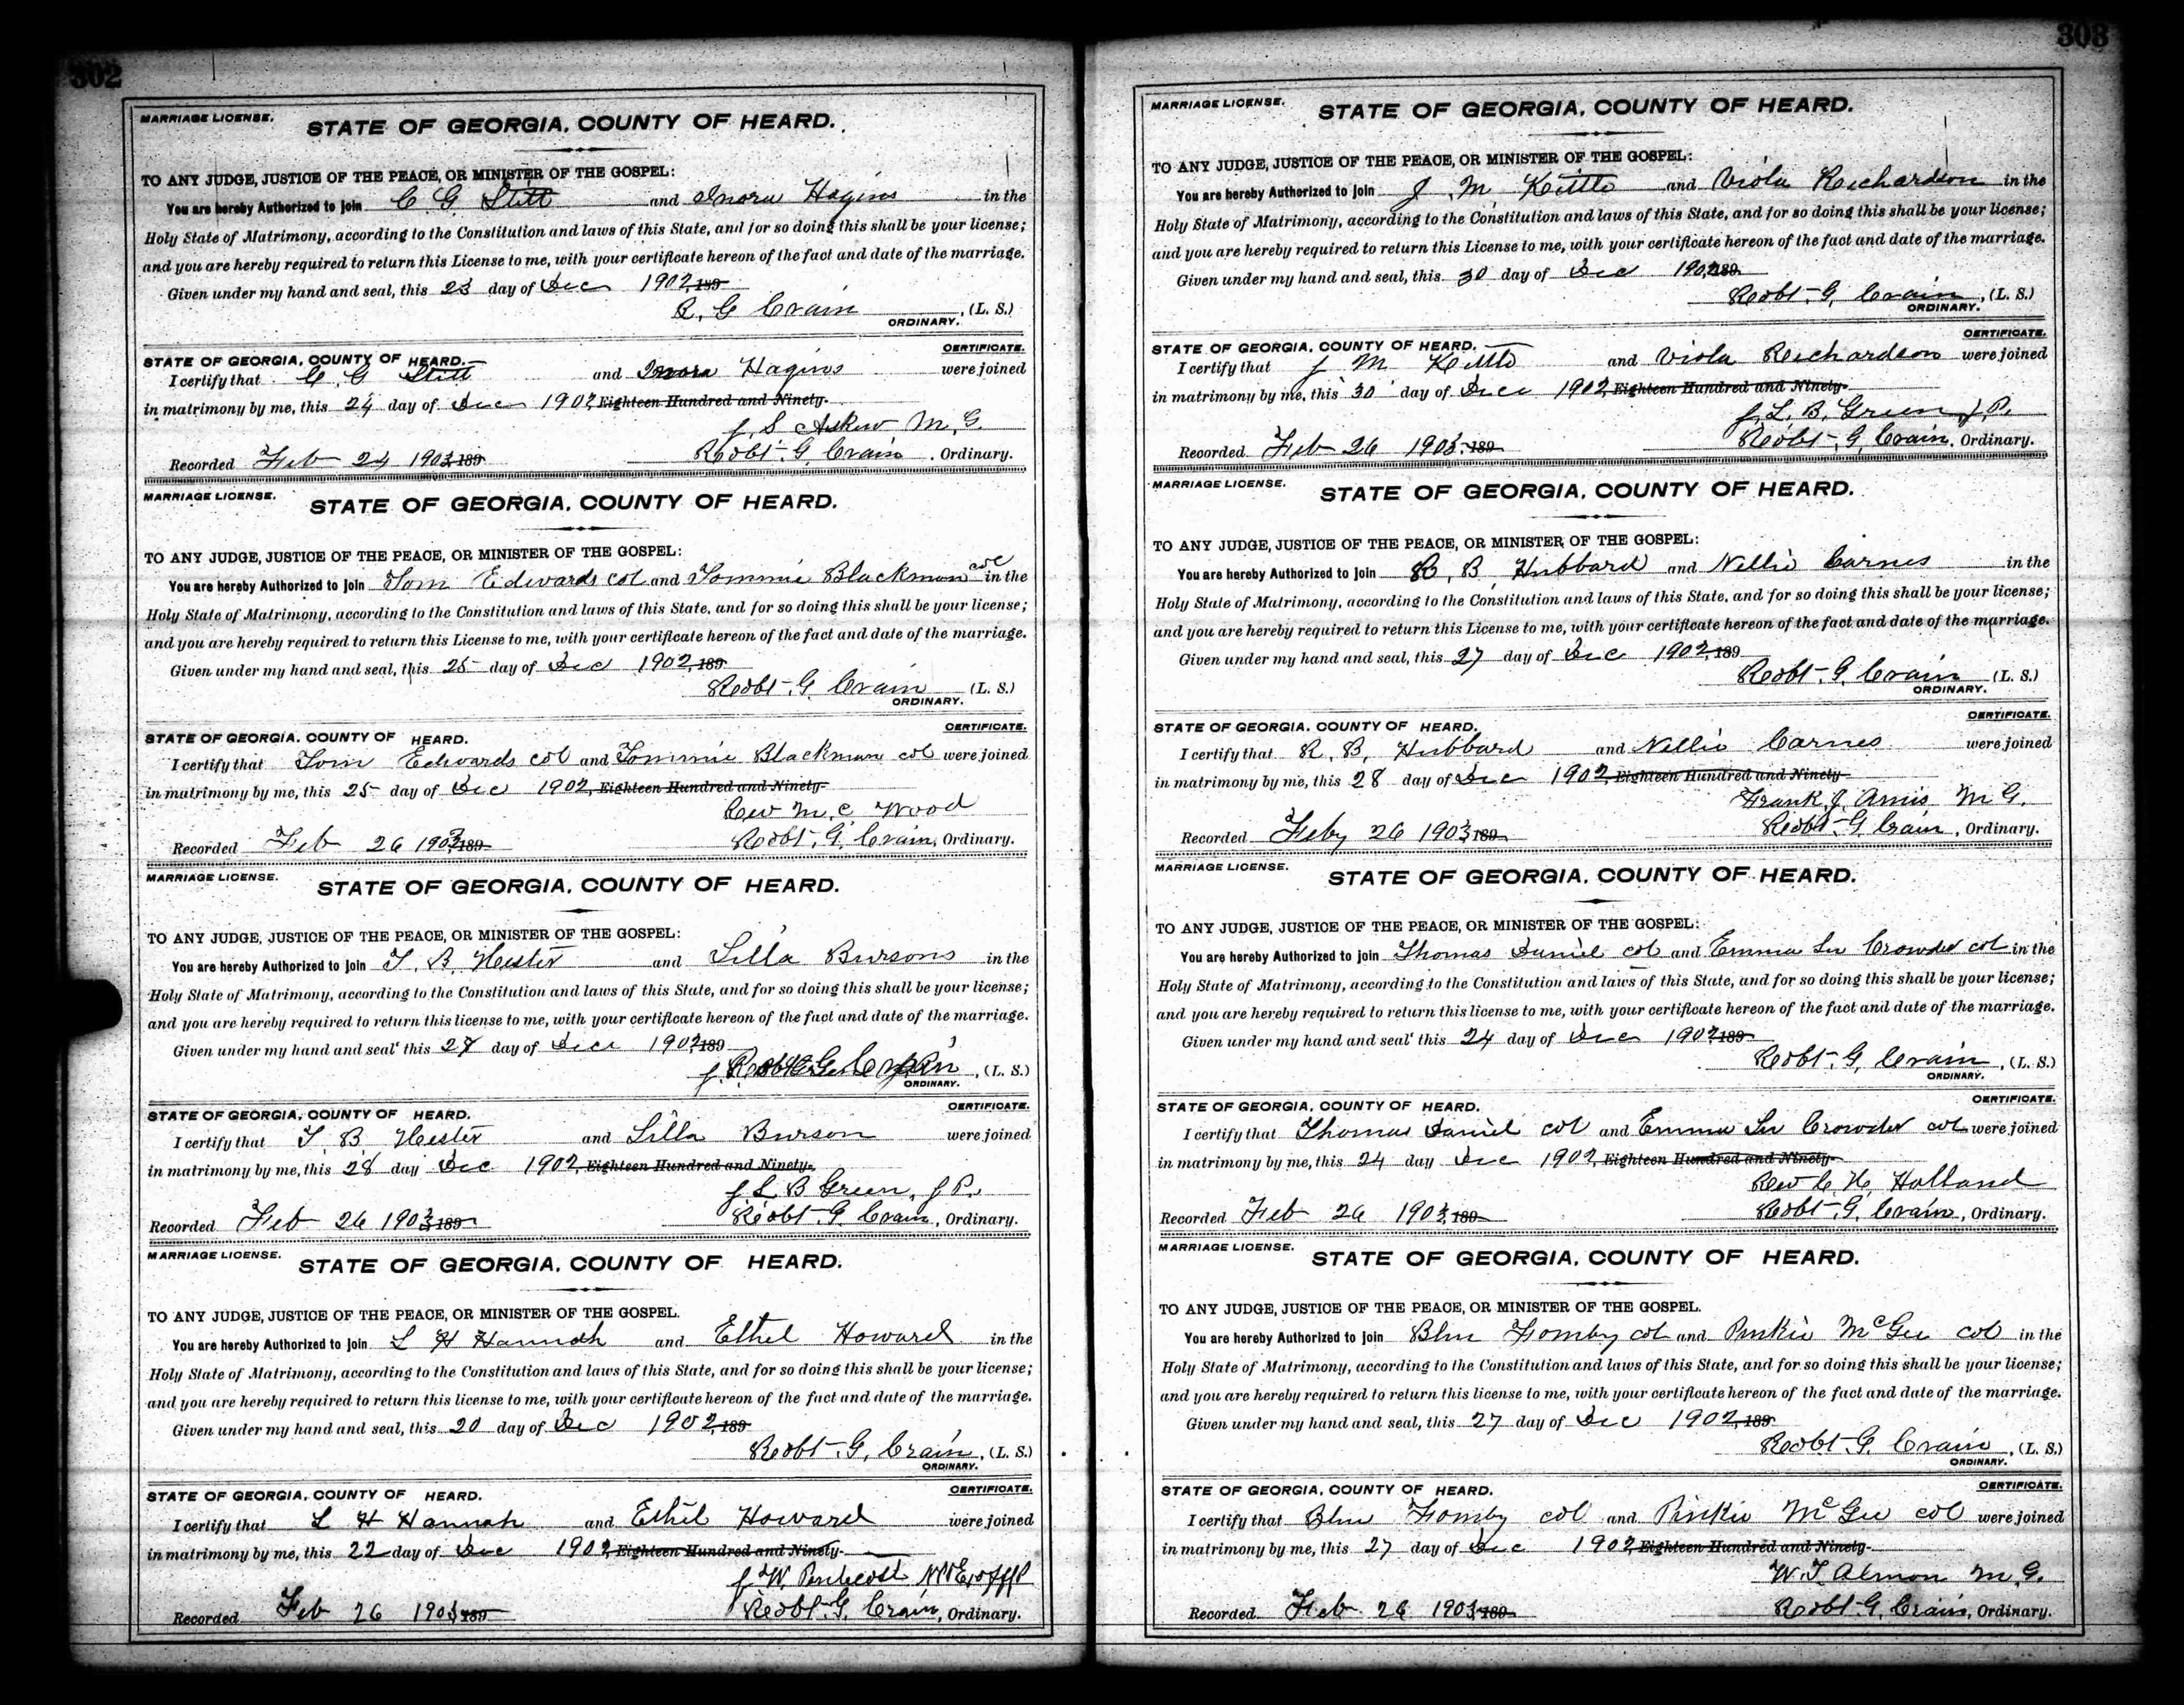 302
MARRIAGE LICENSE.
STATE OF GEORGIA, COUNTY OF HEARD.
TO ANY JUDGE, JUSTICE OF THE PEACE, OR MINISTER OF THE GOSPEL:
You are hereby Authorized to join C G Stitt and Inora Hagins in the
Holy State of Matrimony, according to the Constitution and laws of this State, and for so doing this shall be your license;
and you are hereby required to return this License to me, with your certificate hereon of the fact and date of the marriage.
Given under my hand and seal, this 23 day of Dec 1902, 189
R. G Crain, (L. S.)
ORDINARY.
CERTIFICATE.
STATE OF GEORGIA, COUNTY OF HEARD.
I certify that C. G Stitt and Inora Hagins were joined
in matrimony by me, this 24 day of Dec 1902, Eighteen Hundred and Ninety-
J. S Askew M. G.
Recorded Feb 24 1903, 189 Robt. G. Crain, Ordinary.
MARRIAGE LICENSE.
STATE OF GEORGIA, COUNTY OF HEARD.
TO ANY JUDGE, JUSTICE OF THE PEACE, OR MINISTER OF THE GOSPEL:
You are hereby Authorized to join Tom Edwards col and Tommie Blackmon col in the
Holy State of Matrimony, according to the Constitution and laws of this State, and for so doing this shall be your license;
and you are hereby required to return this License to me, with your certificate hereon of the fact and date of the marriage.
Given under my hand and seal, this 25 day of Dec 1902, 189
Robt. G. Crain (L. S.)
ORDINARY.
CERTIFICATE.
STATE OF GEORGIA, COUNTY OF HEARD.
I certify that Tom Edwards col and Tommie Blackmon col were joined
in matrimony by me, this 25 day of Dec 1902, Eighteen Hundred and Ninety-
Rev M. C. Wood
Recorded Feb 26 1903, 189 Robt. G. Crain, Ordinary.
MARRIAGE LICENSE.
STATE OF GEORGIA, COUNTY OF HEARD.
TO ANY JUDGE, JUSTICE OF THE PEACE, OR MINISTER OF THE GOSPEL:
You are hereby Authorized to join T. B. Hester and Lilla Bursons in the
Holy State of Matrimony, according to the Constitution and laws of this State, and for so doing this shall be your license;
and you are hereby required to return this license to me, with your certificate hereon of the fact and date of the marriage.
Given under my hand and seal this 27 day of Dec 1902, 189
Robt. G. Crain, (L. S.)
ORDINARY.
CERTIFICATE.
STATE OF GEORGIA, COUNTY OF HEARD.
I certify that T B Hester and Lilla Burson were joined
in matrimony by me, this 28 day Dec 1902, Eighteen Hundred and Ninety-
J L B Green, J P.
Recorded Feb 26 1903 189 Robt. G Crain, Ordinary.
MARRIAGE LICENSE.
STATE OF GEORGIA, COUNTY OF HEARD.
TO ANY JUDGE, JUSTICE OF THE PEACE, OR MINISTER OF THE GOSPEL.
You are hereby Authorized to join L H Hannah and Ethel Howard in the
Holy State of Matrimony, according to the Constitution and laws of this State, and for so doing this shall be your license;
and you are hereby required to return this license to me, with your certificate hereon of the fact and date of the marriage.
Given under my hand and seal, this 20 day of Dec 1902, 189
Robt. G. Crain, (L. S.)
ORDINARY.
CERTIFICATE.
STATE OF GEORGIA, COUNTY OF HEARD.
I certify that L H Hannah and Ethel Howard were joined
in matrimony by me, this 22 day of Dec 1902, Eighteen Hundred and Ninety-
J W. Pentecost
Recorded Feb 26 1903, 189 Robt. G. Crain, Ordinary.
303
MARRIAGE LICENSE.
STATE OF GEORGIA, COUNTY OF HEARD.
TO ANY JUDGE, JUSTICE OF THE PEACE, OR MINISTER OF THE GOSPEL:
You are hereby Authorized to join J. M. Kittle and Viola Reichardson in the
Holy State of Matrimony, according to the Constitution and laws of this State, and for so doing this shall be your license;
and you are hereby required to return this License to me, with your certificate hereon of the fact and date of the marriage.
Given under my hand and seal, this 30 day of Dec 1902, 189
Robt. G. Crain, (L. S.)
ORDINARY.
CERTIFICATE.
STATE OF GEORGIA, COUNTY OF HEARD.
I certify that J M Kittle and Viola Reichardson were joined
in matrimony by me, this 30 day of Dec 1902, Eighteen Hundred and Ninety-
J. L. B. Green J. P.
Recorded Feb 26 1903, 189 Robt. G. Crain, Ordinary.
MARRIAGE LICENSE.
STATE OF GEORGIA, COUNTY OF HEARD.
TO ANY JUDGE, JUSTICE OF THE PEACE, OR MINISTER OF THE GOSPEL:
You are hereby Authorized to join R. B. Hubbard and Nellie Carnes in the
Holy State of Matrimony, according to the Constitution and laws of this State, and for so doing this shall be your license;
and you are hereby required to return this License to me, with your certificate hereon of the fact and date of the marriage.
Given under my hand and seal, this 27 day of Dec 1902, 189
Robt. G. Crain (L. S.)
ORDINARY.
CERTIFICATE.
STATE OF GEORGIA, COUNTY OF HEARD.
I certify that R. B. Hubbard and Nellie Carnes were joined
in matrimony by me, this 28 day of Dec 1902, Eighteen Hundred and Ninety-
Frank J. Amis M G.
Recorded Feby 26 1903, 189 Robt. G. Crain, Ordinary.
MARRIAGE LICENSE.
STATE OF GEORGIA, COUNTY OF HEARD.
TO ANY JUDGE, JUSTICE OF THE PEACE, OR MINISTER OF THE GOSPEL:
You are hereby Authorized to join Thomas Daniel col and Emma Lee Crowder col in the
Holy State of Matrimony, according to the Constitution and laws of this State, and for so doing this shall be your license;
and you are hereby required to return this license to me, with your certificate hereon of the fact and date of the marriage.
Given under my hand and seal this 24 day of Dec 1902, 189
Robt. G. Crain, (L. S.)
ORDINARY.
CERTIFICATE.
STATE OF GEORGIA, COUNTY OF HEARD.
I certify that Thomas Daniel col and Emma Lee Crowder col were joined
in matrimony by me, this 24 day Dec 1902, Eighteen Hundred and Ninety-
Rev C. H. Holland
Recorded Feb 26 1903, 189 Robt. G. Crain, Ordinary.
MARRIAGE LICENSE.
STATE OF GEORGIA, COUNTY OF HEARD.
TO ANY JUDGE, JUSTICE OF THE PEACE, OR MINISTER OF THE GOSPEL.
You are hereby Authorized to join Blue Fomby col and Pinkie McGee col in the
Holy State of Matrimony, according to the Constitution and laws of this State, and for so doing this shall be your license;
and you are hereby required to return this license to me, with your certificate hereon of the fact and date of the marriage.
Given under my hand and seal, this 27 day of Dec 1902, 189
Robt. G. Crain, (L. S.)
ORDINARY.
CERTIFICATE.
STATE OF GEORGIA, COUNTY OF HEARD.
I certify that Blue Fomby col and Pinkie McGee col were joined
in matrimony by me, this 27 day of Dec 1902, Eighteen Hundred and Ninety-
W. T. Almon M. G.
Recorded Feb 26 1903, 189 Robt. G. Crain, Ordinary.